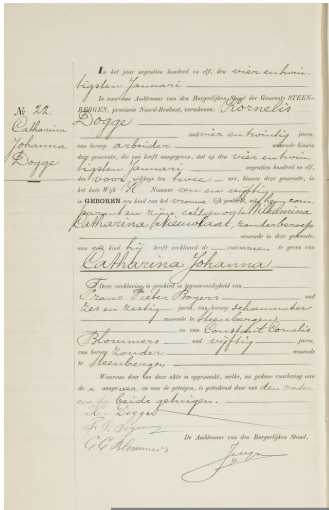 No 22.
Catharina
Johanna
Dogge
In het jaar negentien honderd en elf, den vier en twin-
tigsten Januari
is voor ons Ambtenaar van den Burgerlijken Stand der Gemeente STEEN-
BERGEN, provincie Noord-Brabant, verschenen: Kornelis
Dogge
oud vier en twintig jaren,
van beroep arbeider wonende binnen
deze gemeente, die ons heeft aangegeven, dat op den vier en twin-
tigsten Januari
negentien honderd en elf,
des voor middags ten twee ure, binnen deze gemeente, in
het huis Wijk K Nummer een en vijftig
is GEBOREN een kind van het vrouwelijk geslacht, uit hem com-
parant en zijne echtgenoote Wilhelmina
Catharina Nieuwstadt, zonder beroep
wonende in deze gemeente,
aan welk kind hij heeft verklaard de voornamen te geven van
Catharina Johanna
Deze verklaring is geschied in tegenwoordigheid van
Frans Pieter Bogers oud
zes en zestig jaren, van beroep schoenmaker
wonende te Steenbergen
en van Constant Cornelis
Blommers oud vijftig jaren,
van beroep zonder wonende
te Steenbergen
Waarvan door ons deze akte is opgemaakt, welke, na gedane voorlezing aan
de aangever en aan de getuigen, is geteekend door ons den vader
en de beide getuigen.
K. Dogge
F. P. Bogers
C C Blommers
De Ambtenaar van den Burgerlijken Stand,